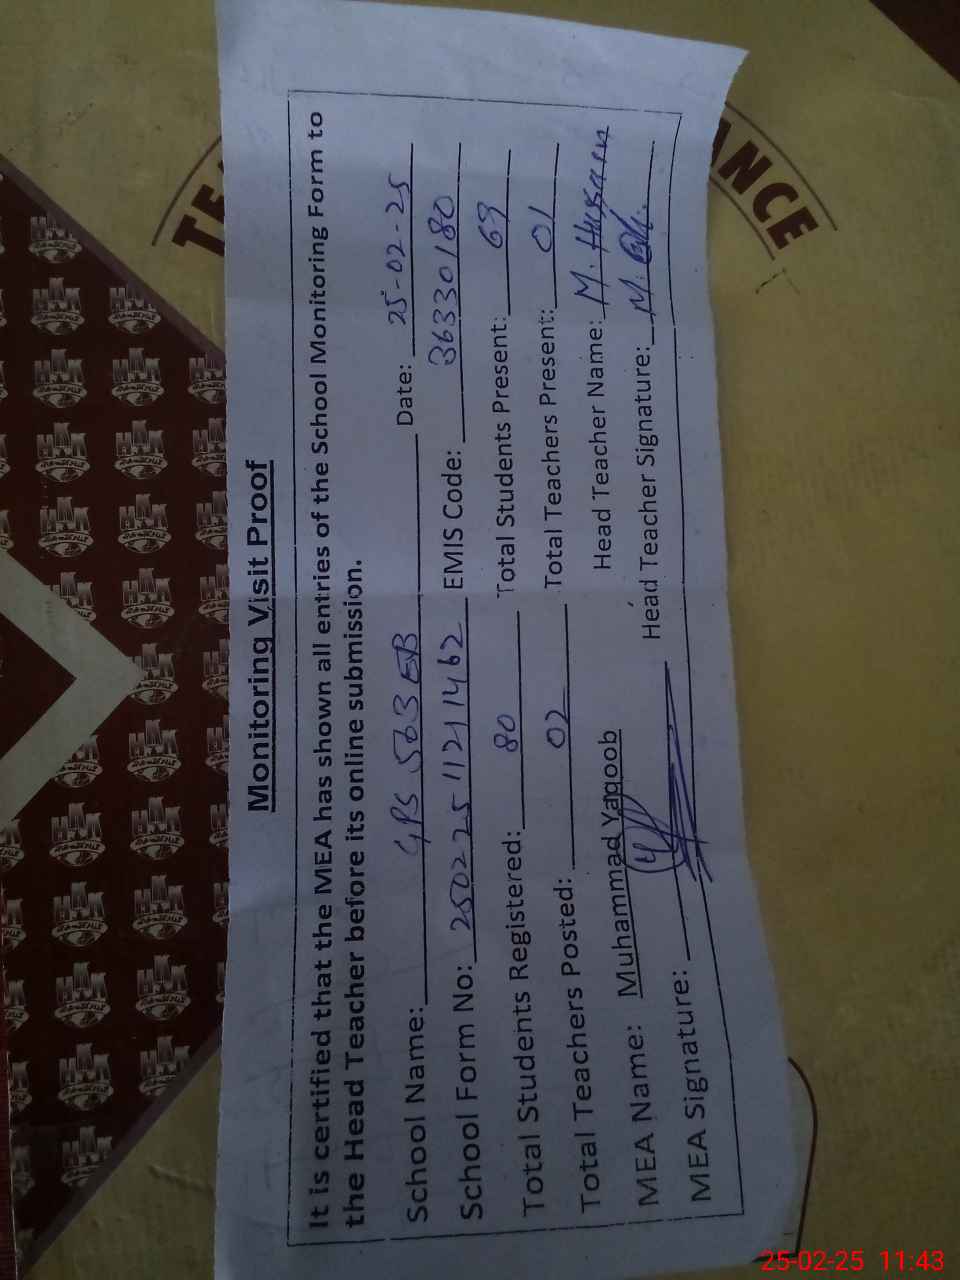 Monitoring Visit Proof
It is certified that the MEA has shown all entries of the School Monitoring Form to
the Head Teacher before its online submission.
School Name: GPS 563 EB Date: 25-02-25
School Form No: 25022511211462 EMIS Code: 36330180
Total Students Registered: 80 Total Students Present: 69
Total Teachers Posted: 02 Total Teachers Present: 01
MEA Name: Muhammad Yaqoob Head Teacher Name: M. Hussain
MEA Signature: Head Teacher Signature: M.
25-02-25 11:43